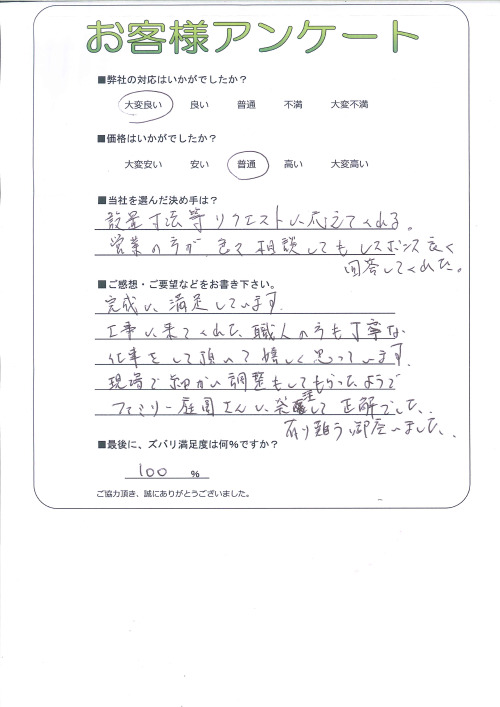 お客様アンケート
■弊社の対応はいかがでしたか？
大変良い 良い 普通 不満 大変不満
■価格はいかがでしたか？
大変安い 安い 普通 高い 大変高い
■当社を選んだ決め手は？
設置寸法等リクエストに応えてくれる。
営業の方が色々相談してもレスポンス良く
回答してくれた。
■ご感想・ご要望などをお書き下さい。
完成に満足しています.
工事に来てくれた職人の方も丁寧な
仕事をして頂いて嬉しく思っています.
現場で細かい調整もしてもらったようで
ファミリー庭園さんに発注して正解でした.
有り難う御座いました.
■最後に、ズバリ満足度は何％ですか？
100 %
ご協力頂き、誠にありがとうございました。